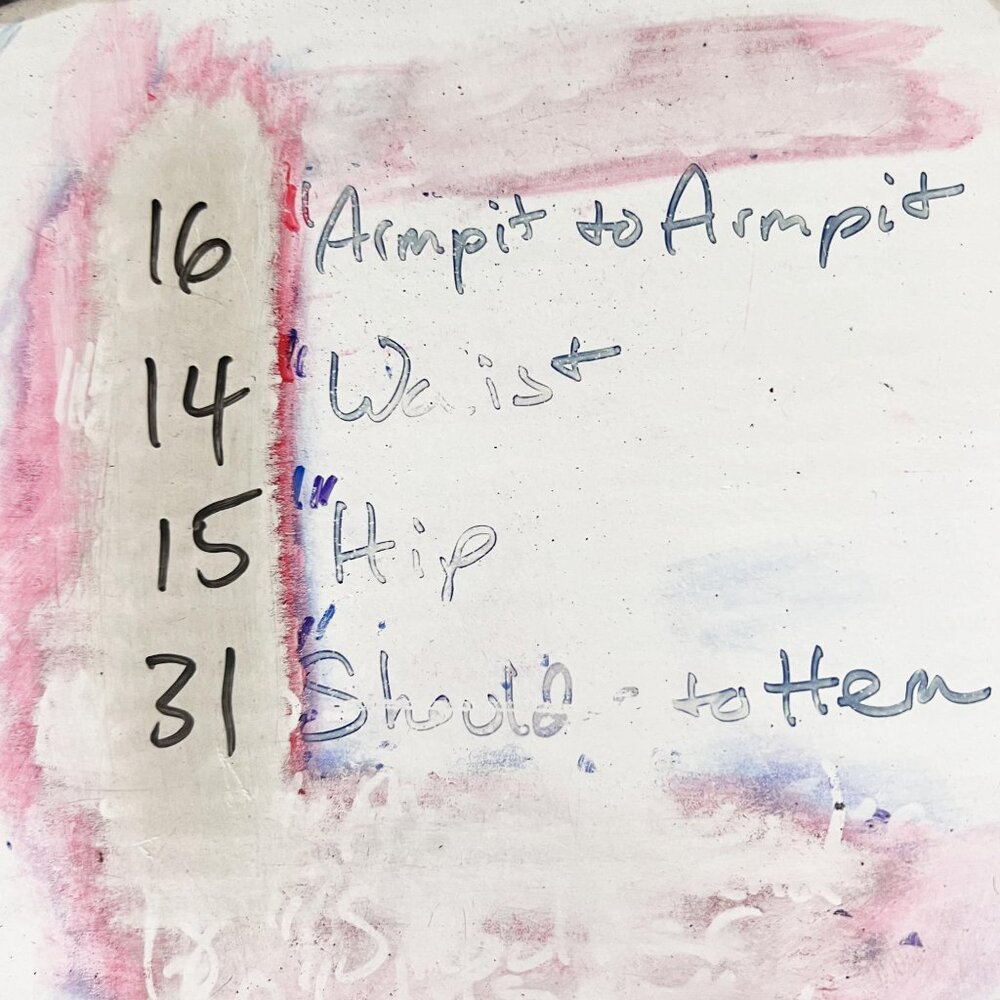 16" Armpit to Armpit
14" Waist
15" Hip
31" to Hem